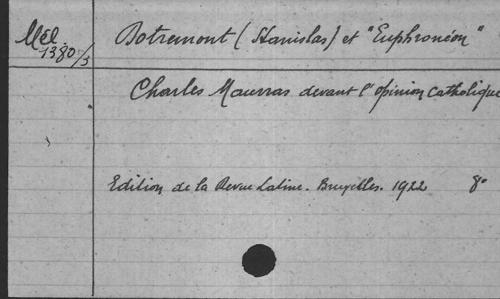 Mél
1380/3
Botremont (Stanislas) et "Euphronéon"
Charles Maurras devant l'opinion catholique
Edition de la Revue Latine. Bruxelles. 1922 8°